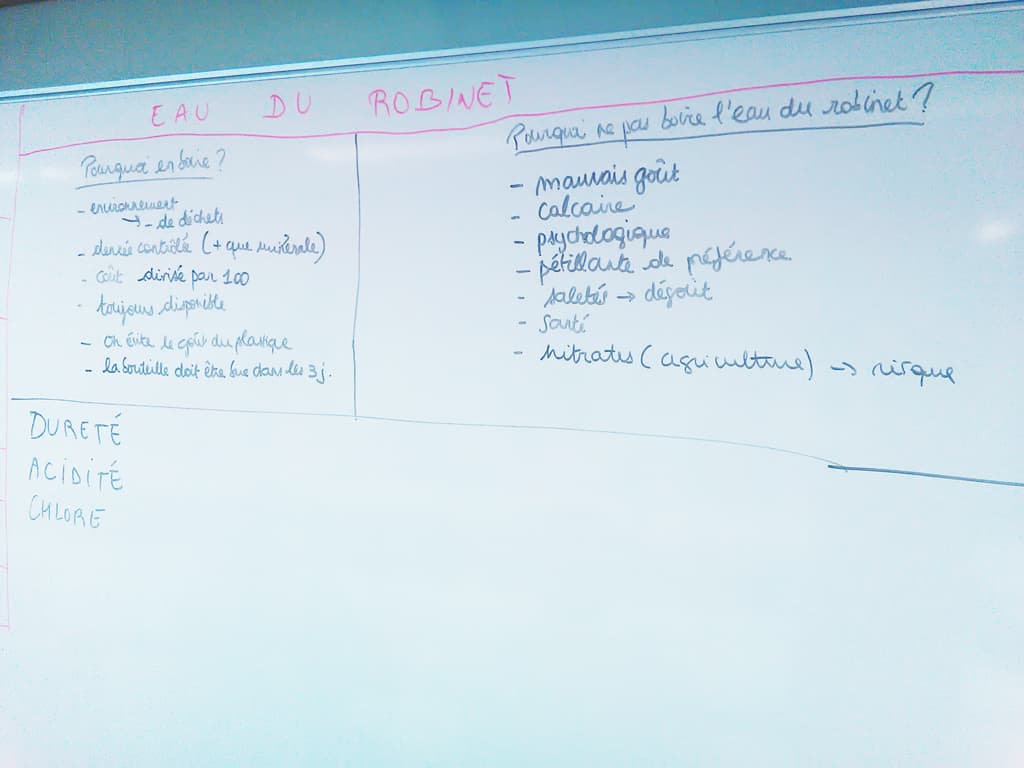 EAU DU ROBINET
Pourquoi en boire ?
- environnement
→ - de déchets
- denrée contrôlée (+ que minérale)
- coût divisé par 100
- toujours disponible
- on évite le goût du plastique
- la bouteille doit être bue dans les 3 j.
Pourquoi ne pas boire l'eau du robinet ?
- mauvais goût
- calcaire
- psychologique
- pétillante de préférence
- saletés → dégoût
- santé
- nitrates (agriculture) → risque
DURETÉ
ACIDITÉ
CHLORE